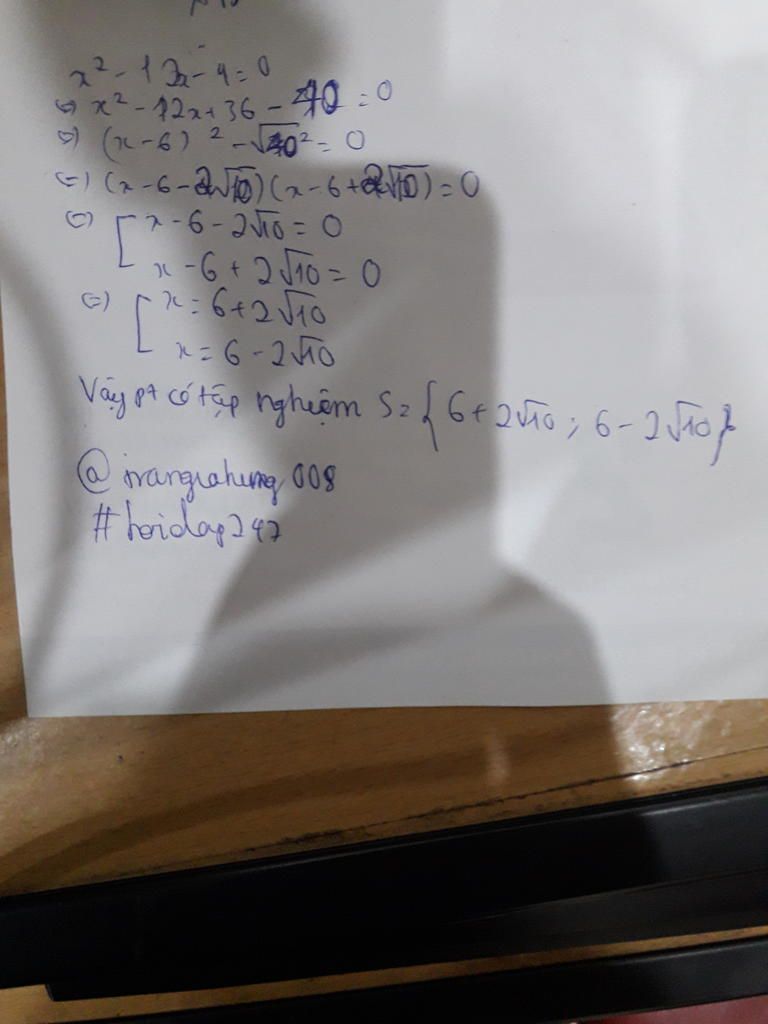 x² - 12x - 4 = 0
⇔ x² - 12x + 36 - 40 = 0
⇔ (x - 6)² - √40² = 0
⇔ (x - 6 - 2√10)(x - 6 + 2√10) = 0
⇔ [ x - 6 - 2√10 = 0
x - 6 + 2√10 = 0
⇔ [ x = 6 + 2√10
x = 6 - 2√10
Vậy pt có tập nghiệm S = { 6 + 2√10 ; 6 - 2√10 }
#hoidap247